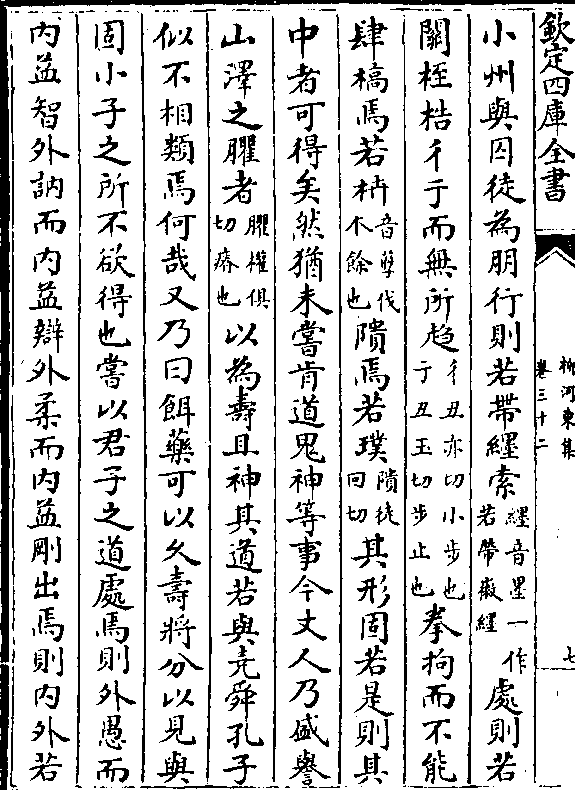 欽定四庫全書
柳河東集
卷三十二
七
小州與囚徒為朋行則若帶纆索纆音墨一作若帶徽纆處則若
關桎梏彳亍而無所趍彳丑亦切小步也亍丑玉切步止也拳拘而不能
肆槁焉若枿音孽伐木餘也隤焉若璞隤徒回切其形固若是則其
中者可得矣然猶未嘗肯道鬼神等事今丈人乃盛譽
山澤之臞者臞權俱切瘠也以為壽且神其道若與堯舜孔子
似不相類焉何哉又乃曰餌藥可以久壽將分以見與
固小子之所不欲得也嘗以君子之道處焉則外愚而
內益智外訥而內益辯外柔而內益剛出焉則內外若